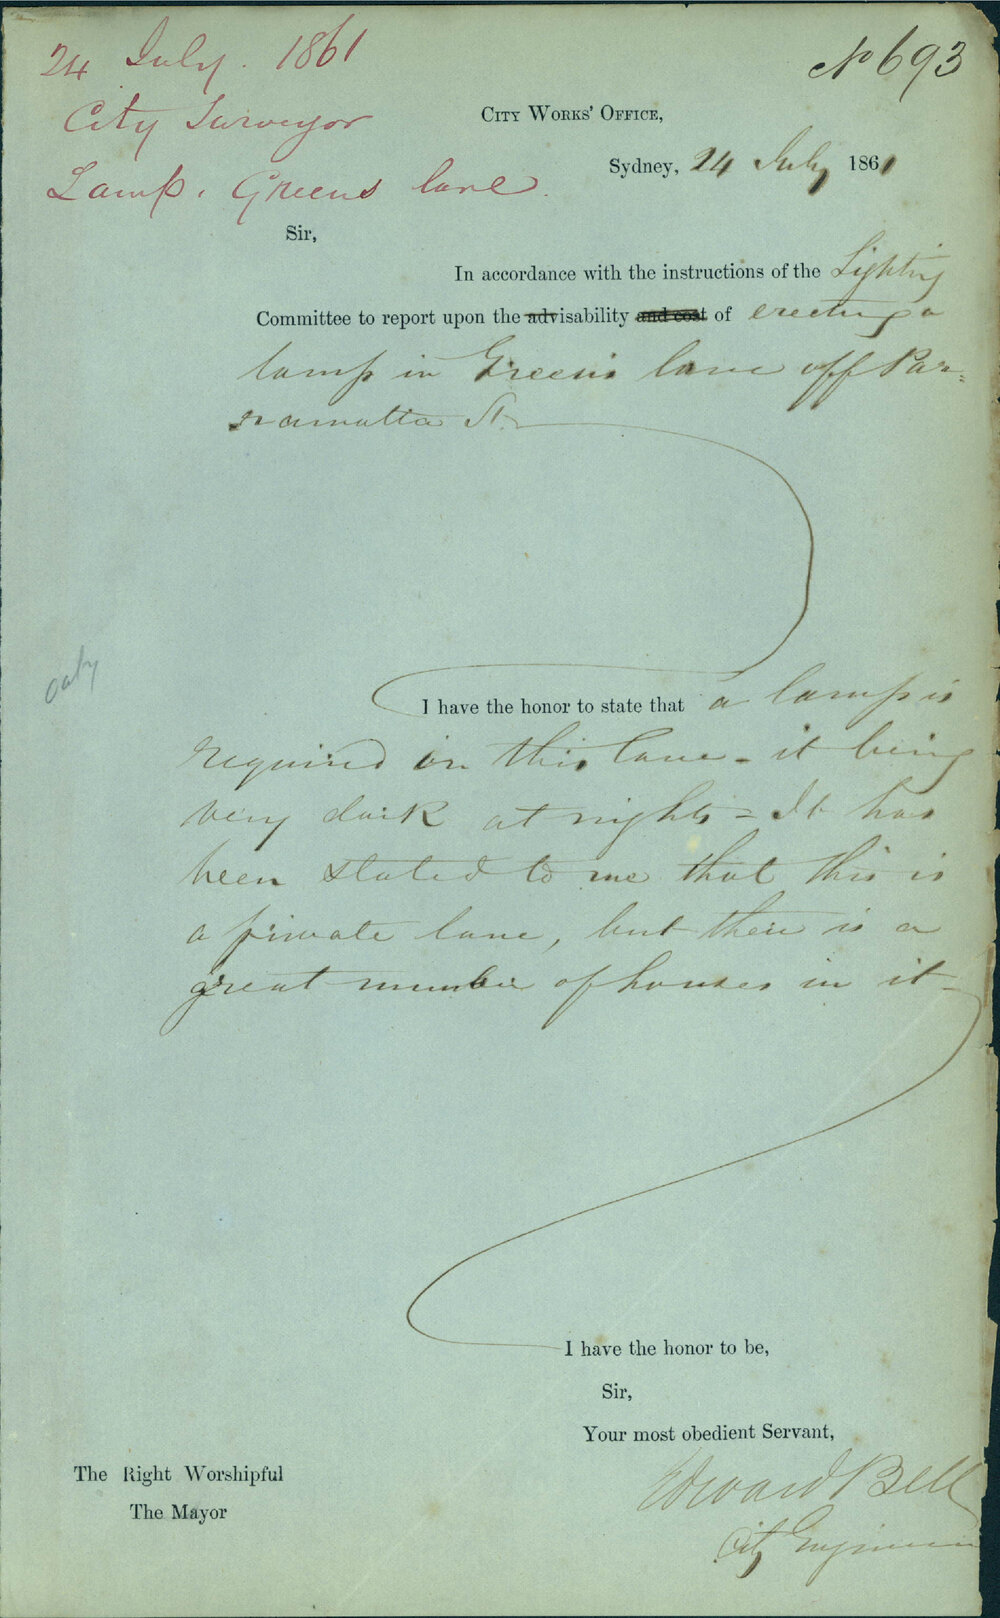 24 July. 1861
City Surveyor
Lamp. Greens lane.
No 693
City Works' Office,
Sydney, 24 July 1861
Sir,
In accordance with the instructions of the Lighting
Committee to report upon the advisability and cost of erecting a
lamp in Greens lane off Par=
ramatta St.
I have the honor to state that a lamp is
required in this lane - it being
very dark at nights = It has
been stated to me that this is
a private lane, but there is a
great number of houses in it -
I have the honor to be,
Sir,
Your most obedient Servant,
Edward Bell
City Engineer
The Right Worshipful
The Mayor